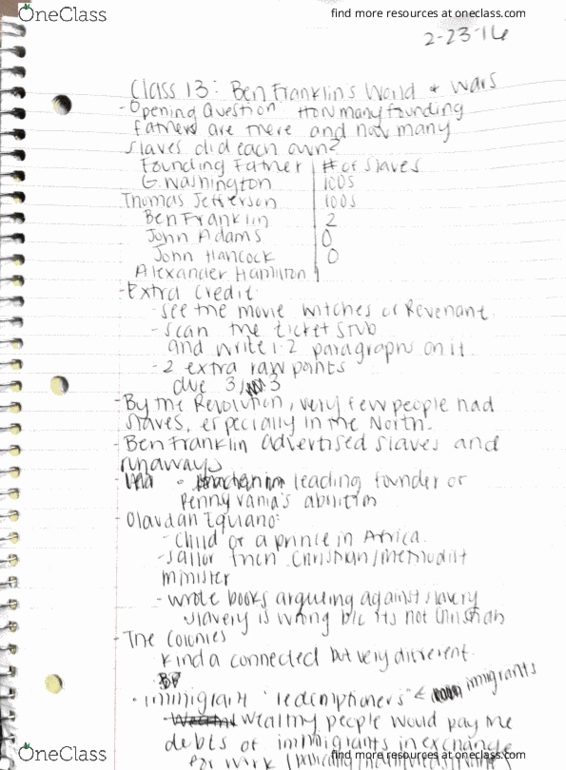 OneClass
find more resources at oneclass.com
2-23-16
Class 13: Ben Franklin's World + Wars
- Opening Question: How many founding
fathers are there and how many
slaves did each own?
Founding Father | # of slaves
G. Washington | 100s
Thomas Jefferson | 100s
Ben Franklin | 2
John Adams | 0
John Hancock | 0
Alexander Hamilton |
- Extra Credit
- see the movie Witches or Revenant.
- scan the ticket stub
and write 1-2 paragraphs on it.
- 2 extra raw points
due 3/3
- By the Revolution, very few people had
slaves, especially in the North.
- Ben Franklin advertised slaves and
runaways
leading founder of
Pennyvania's abolitism
- Olaudah Equiano:
- child of a prince in Africa.
- sailor then Christian/methodist
minister
- wrote books arguing against slavery
slavery is wrong b/c its not Christian
- The Colonies
kinda connected but very different.
- immigrant "redemptioners" < immigrants
- wealthy people would pay the
debts of immigrants in exchange
for work
OneClass
find more resources at oneclass.com